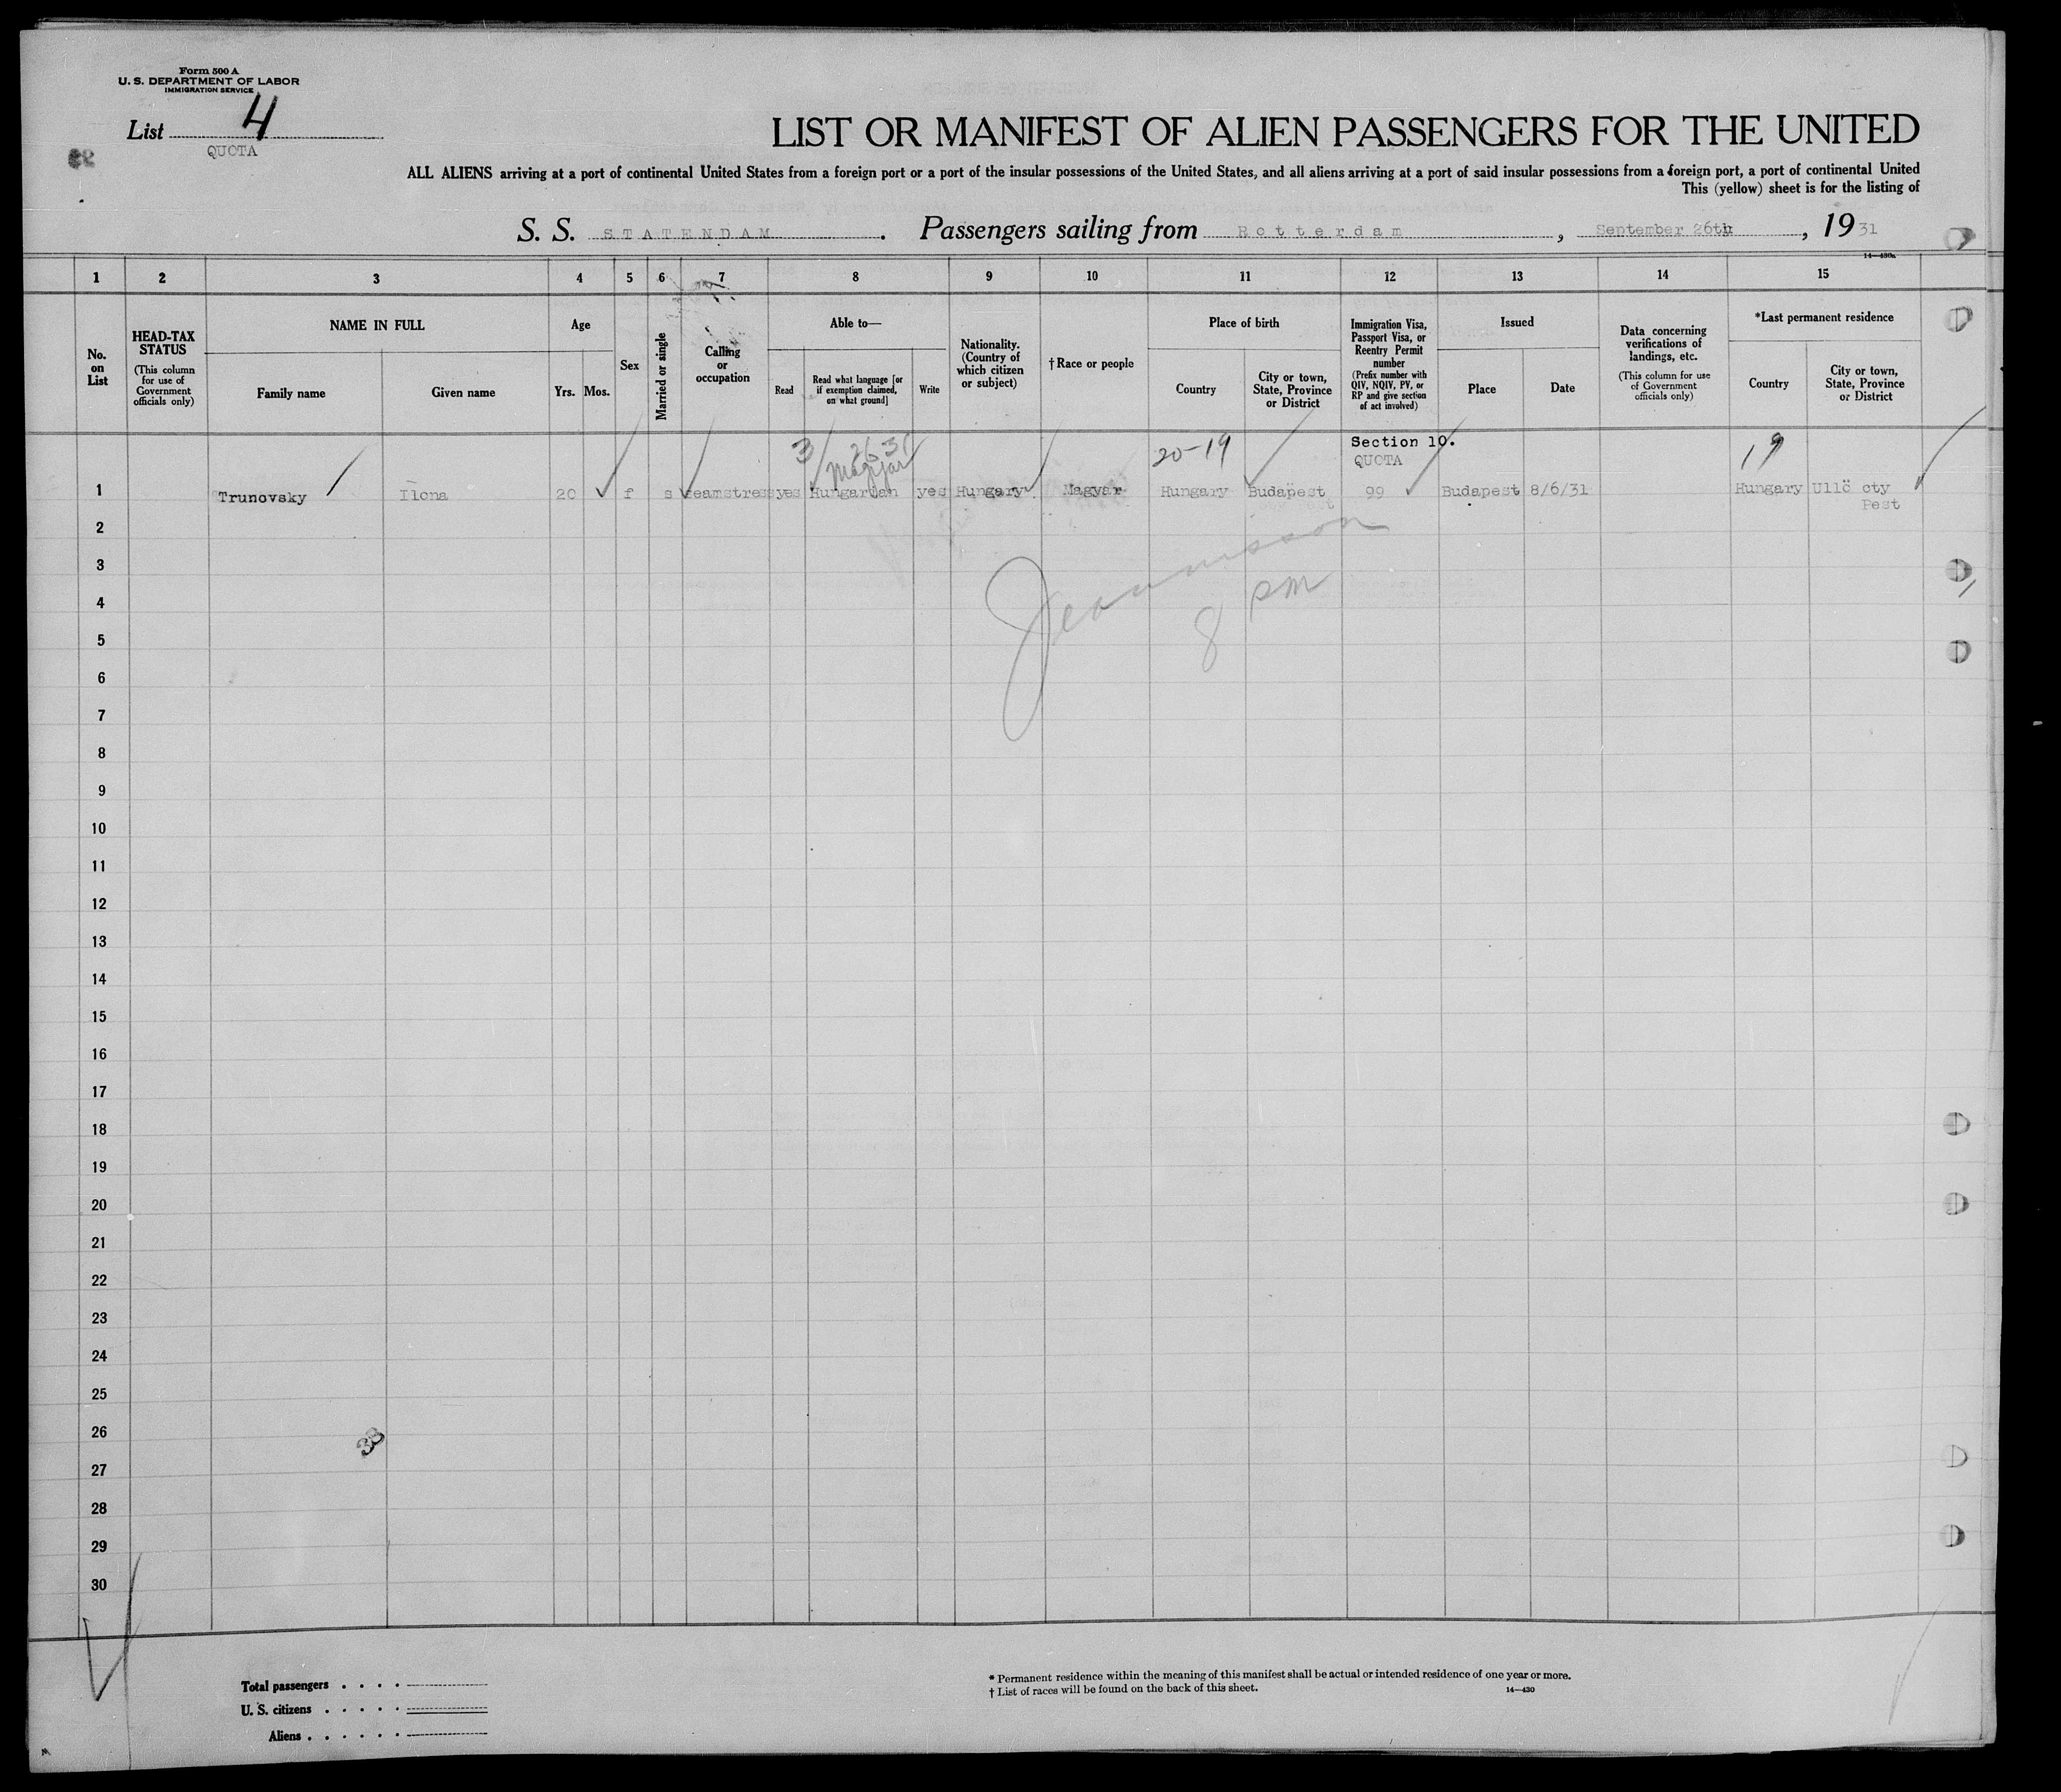 Form 500 A
U. S. DEPARTMENT OF LABOR
IMMIGRATION SERVICE
List 4
QUOTA
LIST OR MANIFEST OF ALIEN PASSENGERS FOR THE UNITED
ALL ALIENS arriving at a port of continental United States from a foreign port or a port of the insular possessions of the United States, and all aliens arriving at a port of said insular possessions from a foreign port, a port of continental United
This (yellow) sheet is for the listing of
S. S. STATENDAM. Passengers sailing from Rotterdam, September 26th, 1931
14—430a
1 2 3 4 5 6 7 8 9 10 11 12 13 14 15
No. on List
HEAD-TAX STATUS
(This column for use of Government officials only)
NAME IN FULL
Family name
Given name
Age
Yrs.
Mos.
Sex
Married or single
Calling or occupation
Able to—
Read
Read what language [or if exemption claimed, on what ground]
Write
Nationality. (Country of which citizen or subject)
†Race or people
Place of birth
Country
City or town, State, Province or District
Immigration Visa, Passport Visa, or Reentry Permit number
(Prefix number with QIV, NQIV, PV, or RP and give section of act involved)
Issued
Place
Date
Data concerning verifications of landings, etc.
(This column for use of Government officials only)
*Last permanent residence
Country
City or town, State, Province or District
3 26 31 20-19 Section 10. 19
Magyar QUOTA
1 Trunovsky Ilona 20 f s seamstress yes Hungarian yes Hungary Magyar Hungary Budapest 99 Budapest 8/6/31 Hungary Ullö cty
Pest
2
3
4
8 PM
5
6
7
8
9
10
11
12
13
14
15
16
17
18
19
20
21
22
23
24
25
26
33
27
28
29
30
Total passengers . . . .
U. S. citizens . . . . .
Aliens . . . . . .
* Permanent residence within the meaning of this manifest shall be actual or intended residence of one year or more.
† List of races will be found on the back of this sheet.
14—430